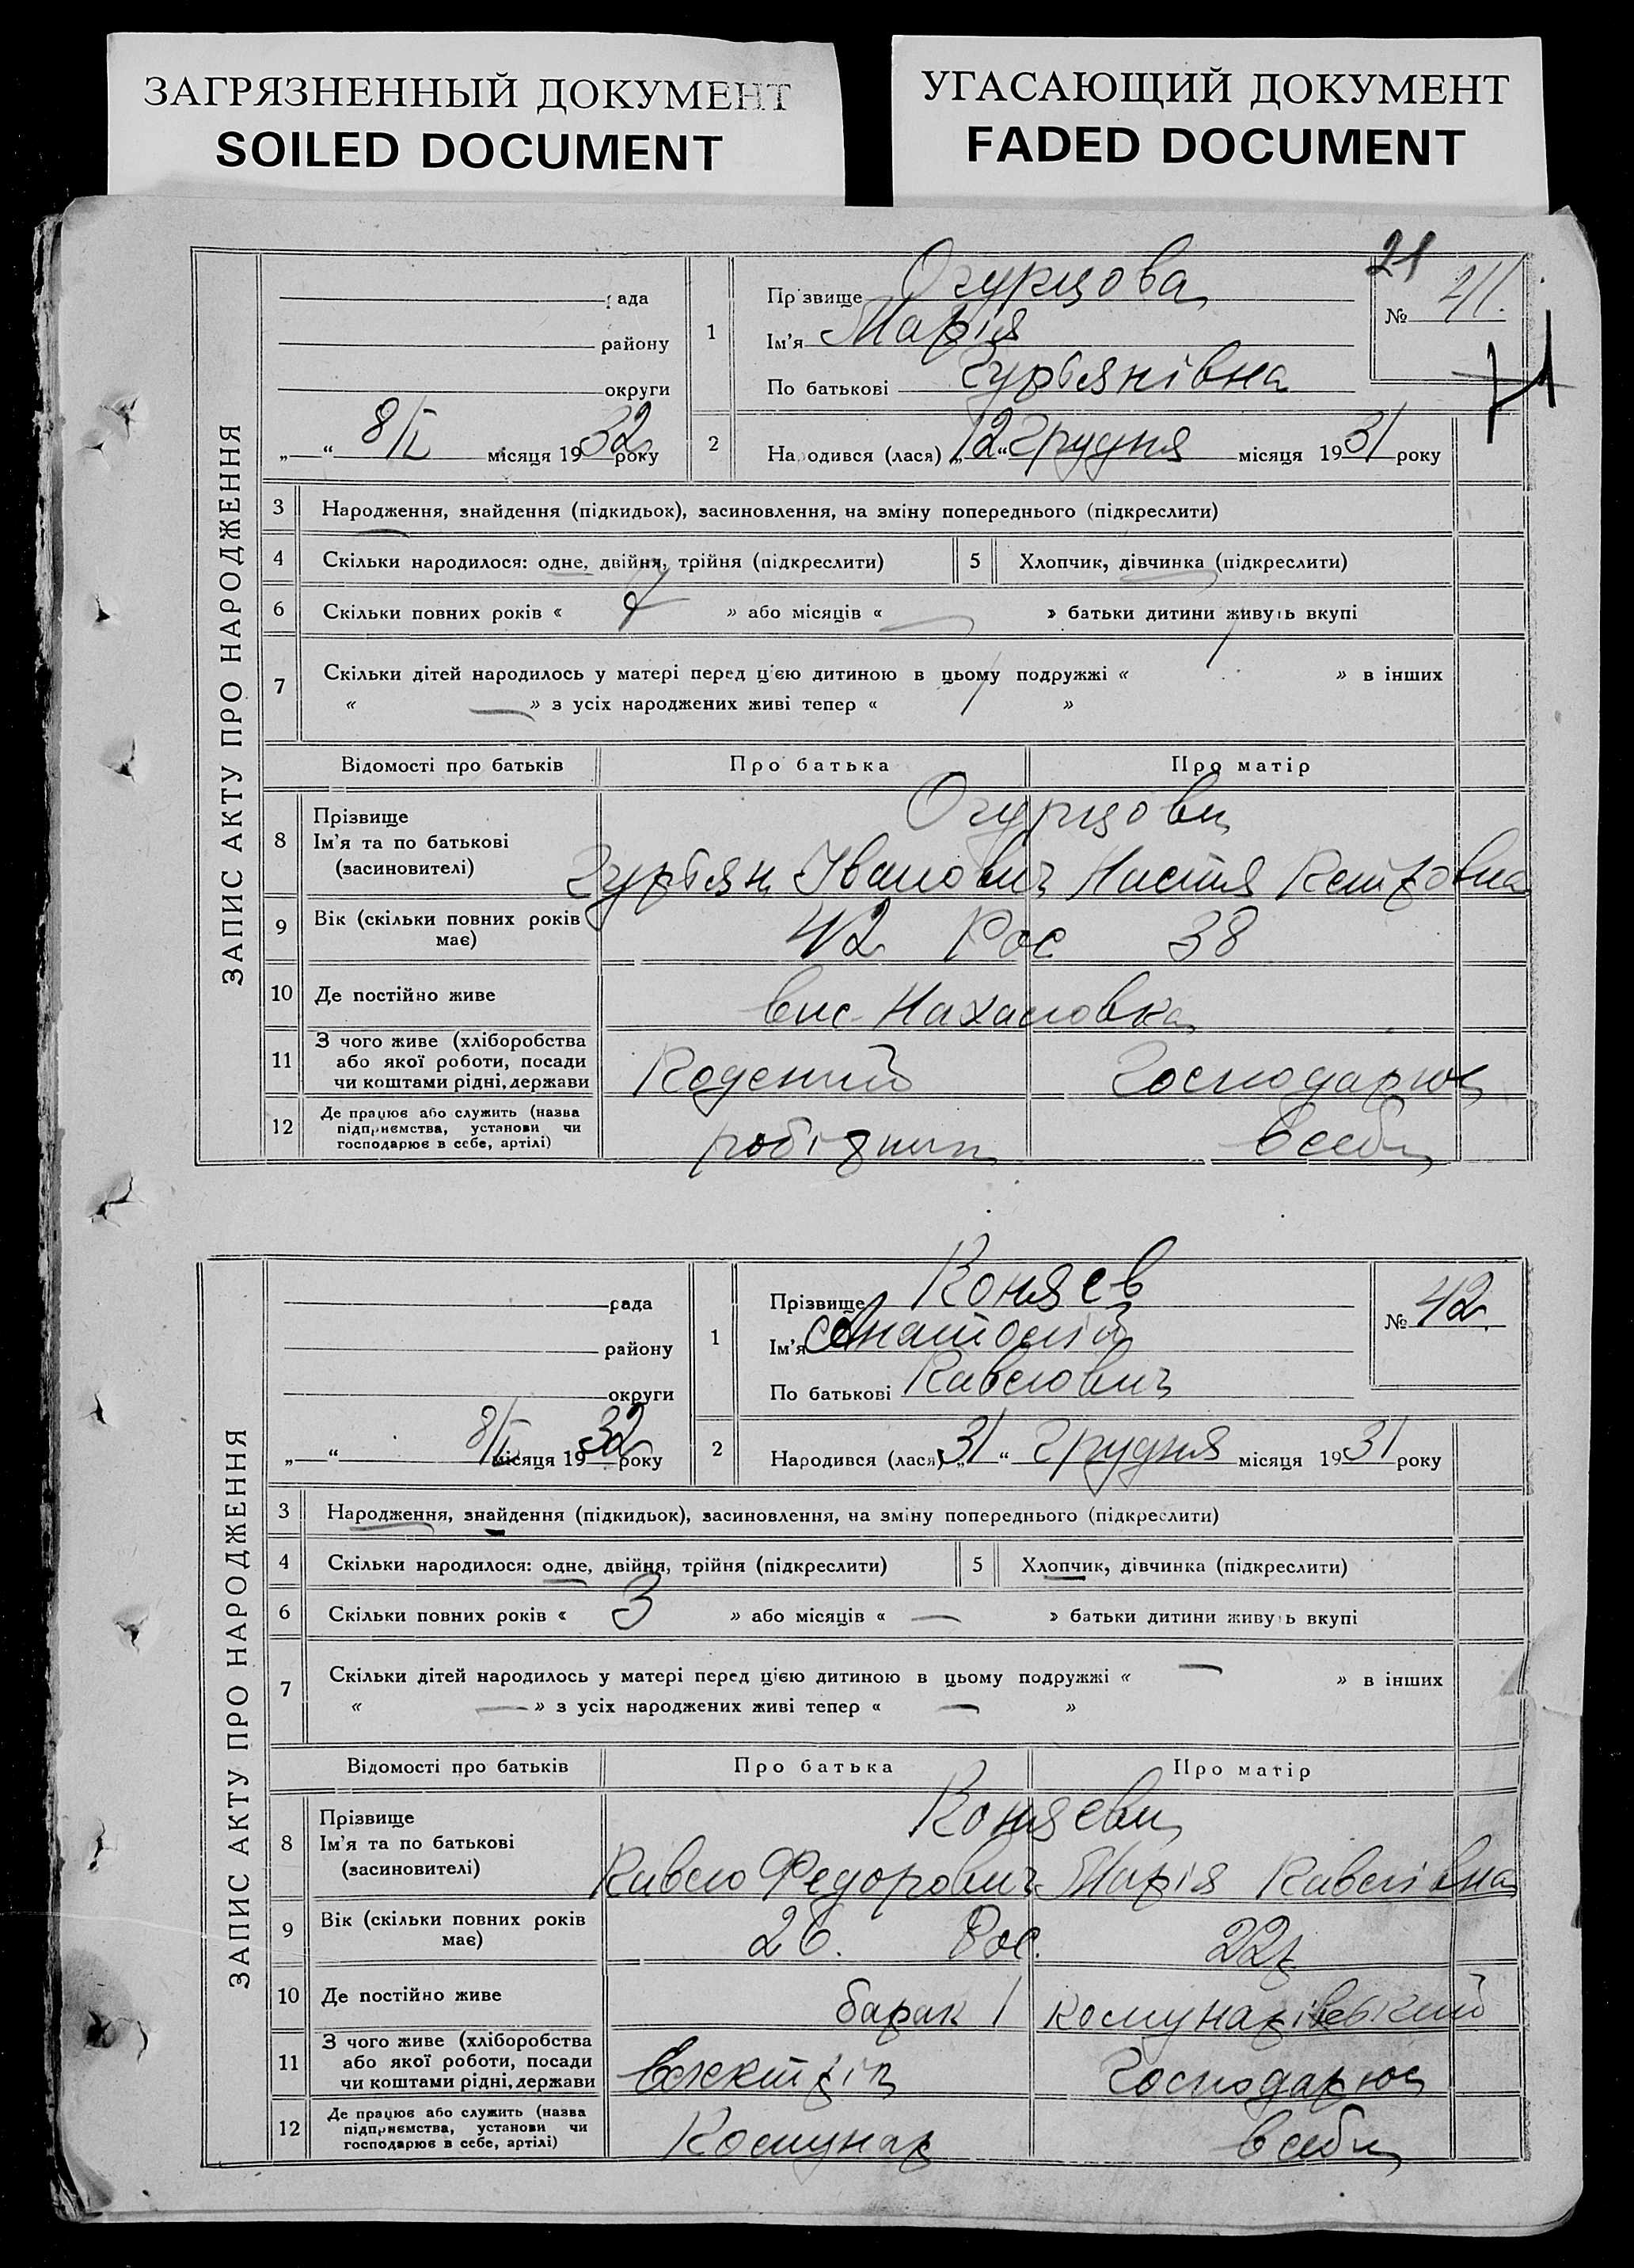 ЗАГРЯЗНЕННЫЙ ДОКУМЕНТ
SOILED DOCUMENT
УГАСАЮЩИЙ ДОКУМЕНТ
FADED DOCUMENT
ЗАПИС АКТУ ПРО НАРОДЖЕННЯ
рада
району
округи
„ “ 8/I місяця 1932 року
21
№ 41.
71
1 Прізвище Огурцова
Ім'я Марія
По батькові Гурьянівна
2 Народився (лася) „12“ Грудня місяця 1931 року
3 Народження, знайдення (підкидьок), засиновлення, на зміну попереднього (підкреслити)
4 Скільки народилося: одне, двійня, трійня (підкреслити) 5 Хлопчик, дівчинка (підкреслити)
6 Скільки повних років « » або місяців « — » батьки дитини живуть вкупі
7 Скільки дітей народилось у матері перед цією дитиною в цьому подружжі « » в інших
« — » з усіх народжених живі тепер « »
Відомості про батьків Про батька Про матір
8 Прізвище Огурцови
Ім'я та по батькові
(засиновителі) Гурьян Іванович Настя Петровна
9 Вік (скільки повних років має) 42 Рос 38
10 Де постійно живе вис. Нахаловка
11 З чого живе (хліборобства
або якої роботи, посади
чи коштами рідні, держави Поденний Господарює
12 Де працює або служить (назва
підприємства, установи чи
господарює в себе, артілі) робітник в себе
ЗАПИС АКТУ ПРО НАРОДЖЕННЯ
рада
району
округи
„ “ 8/I місяця 1932 року
№ 42.
1 Прізвище Коняев
Ім'я Анатолій
По батькові Павлович
2 Народився (лася) „31“ Грудня місяця 1931 року
3 Народження, знайдення (підкидьок), засиновлення, на зміну попереднього (підкреслити)
4 Скільки народилося: одне, двійня, трійня (підкреслити) 5 Хлопчик, дівчинка (підкреслити)
6 Скільки повних років « 3 » або місяців « — » батьки дитини живуть вкупі
7 Скільки дітей народилось у матері перед цією дитиною в цьому подружжі « — » в інших
« — » з усіх народжених живі тепер « — »
Відомості про батьків Про батька Про матір
8 Прізвище Коняеви
Ім'я та по батькові
(засиновителі) Павло Федорович Марія Павлівна
9 Вік (скільки повних років має) 26. Рос. 22
10 Де постійно живе барак 1
11 З чого живе (хліборобства
або якої роботи, посади
чи коштами рідні, держави Господарює
12 Де працює або служить (назва
підприємства, установи чи
господарює в себе, артілі) Комунар в себе